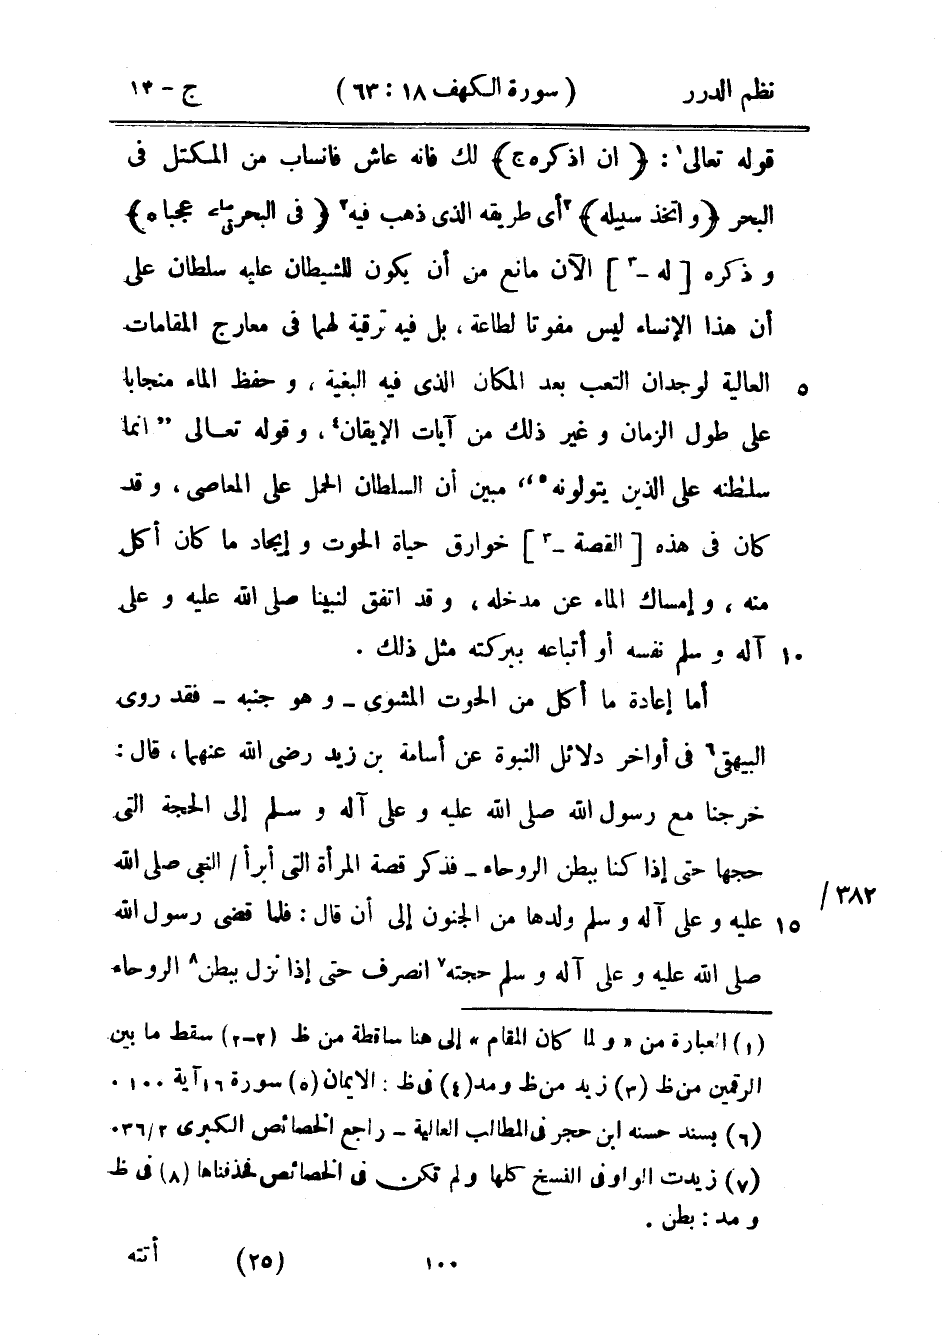 نظم الدرر ( سورة الكهف ١٨ : ٦٣ ) ج - ١٢
قوله تعالى١ : ﴿ ان اذكره ج﴾ لك فانه عاش فانساب من المكتل فى
البحر ﴿و اتخذ سبيله﴾ ٢أى طريقه الذى ذهب فيه٢ ﴿ فى البحر عجبا ه﴾
و ذكره [ له -٣ ] الآن مانع من أن يكون للشيطان عليه سلطان على
أن هذا الإنساء ليس مفوتا لطاعة ، بل فيه ترقية لهما فى معارج المقامات
٥ العالية لوجدان التعب بعد المكان الذى فيه البغية ، و حفظ الماء منجابا
على طول الزمان و غير ذلك من آيات الإيقان٤ ، و قوله تعالى ” انما
سلطنه على الذين يتولونه٥ “ مبين أن السلطان الحمل على المعاصى ، و قد
كان فى هذه [ القصة -٣ ] خوارق حياة الحوت و إيجاد ما كان أكل
منه ، و إمساك الماء عن مدخله ، و قد اتفق لنبينا صلى الله عليه و على
١٠ آله و سلم نفسه أو أتباعه ببركته مثل ذلك .
أما إعادة ما أكل من الحوت المشوى - و هو جنبه - فقد روى
البيهقى٦ فى أواخر دلائل النبوة عن أسامة بن زيد رضى الله عنهما ، قال :
خرجنا مع رسول الله صلى الله عليه و على آله و سلم إلى الحجة التى
حجها حتى إذا كنا ببطن الروحاء - فذكر قصة المرأة التى أبرأ / النبى صلى الله
/ ٣٨٢
١٥ عليه و على آله و سلم ولدها من الجنون إلى أن قال : فلما قضى رسول الله
صلى الله عليه و على آله و سلم حجته٧ انصرف حتى إذا نزل ببطن٨ الروحاء
(١) العبارة من « و لما كان المقام » إلى هنا ساقطة من ظ (٢-٢) سقط ما بين
الرقمين من ظ (٣) زيد من ظ و مد (٤) فى ظ : الايمان (٥) سورة ١٦ آية ١٠٠ .
(٦) بسند حسنه ابن حجر فى المطالب العالية - راجع الخصائص الكبرى ٢/ ٠٣٦
(٧) زيدت الواو فى النسخ كلها و لم تكن فى الخصائص فحذفناها (٨) فى ظ
و مد : بطن .
١٠٠ (٢٥) أتته